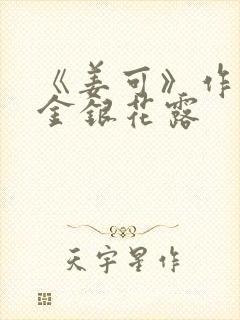 《姜可》作
金银花露
天宇星作